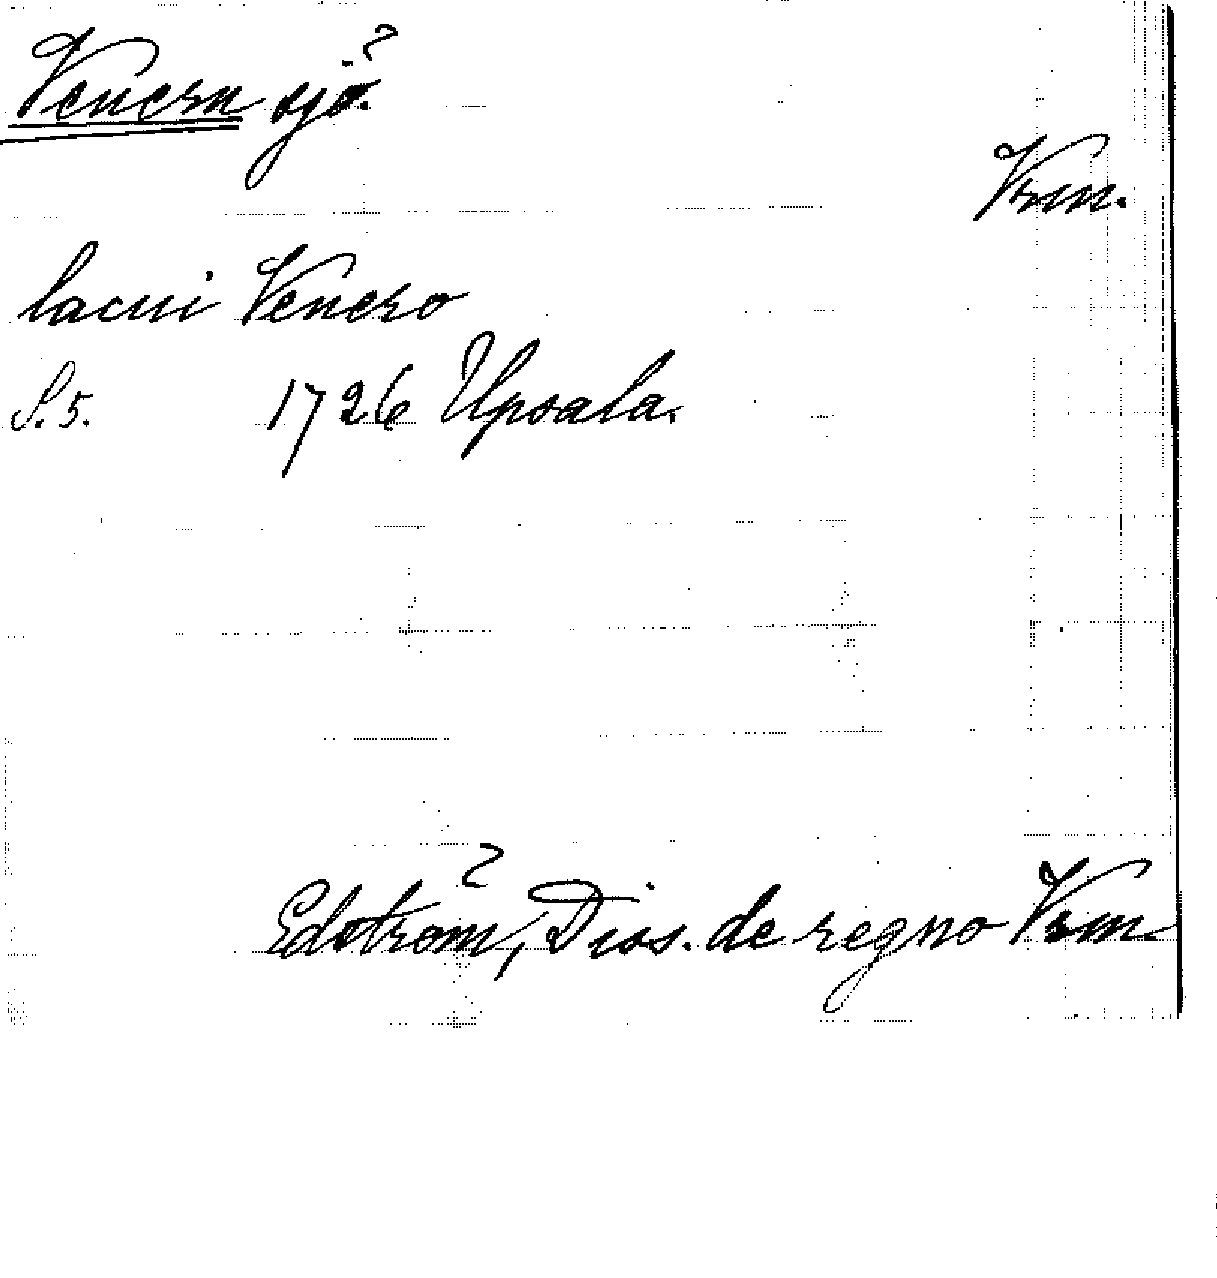 Venern sjö?
Vrm.
lacui Venero
S. 5. 1726 Upsala.
Edström, Diss. de regno Vrm